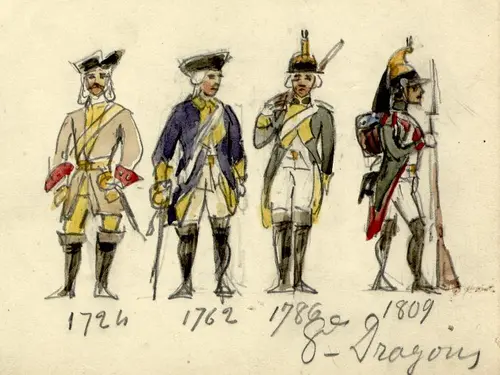 1724 1762 1786 1809
8e Dragons